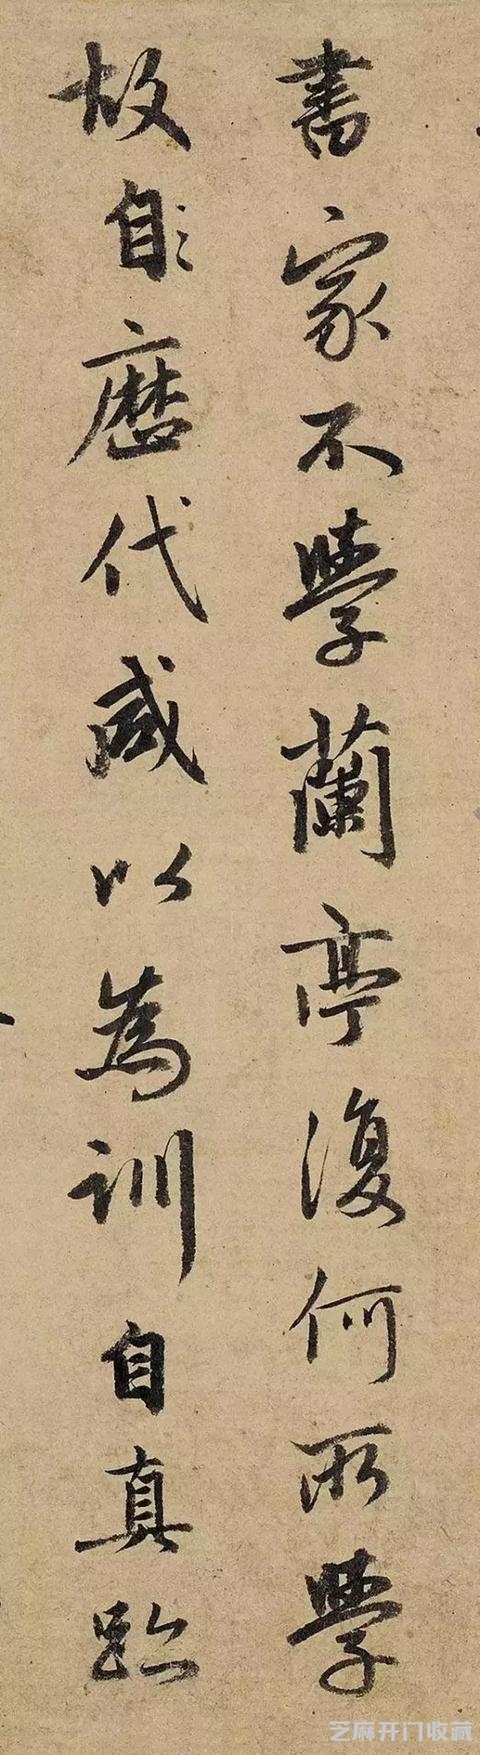 書家不學蘭亭復何所學
故自歷代咸以為訓自真跡
芝麻开门收藏